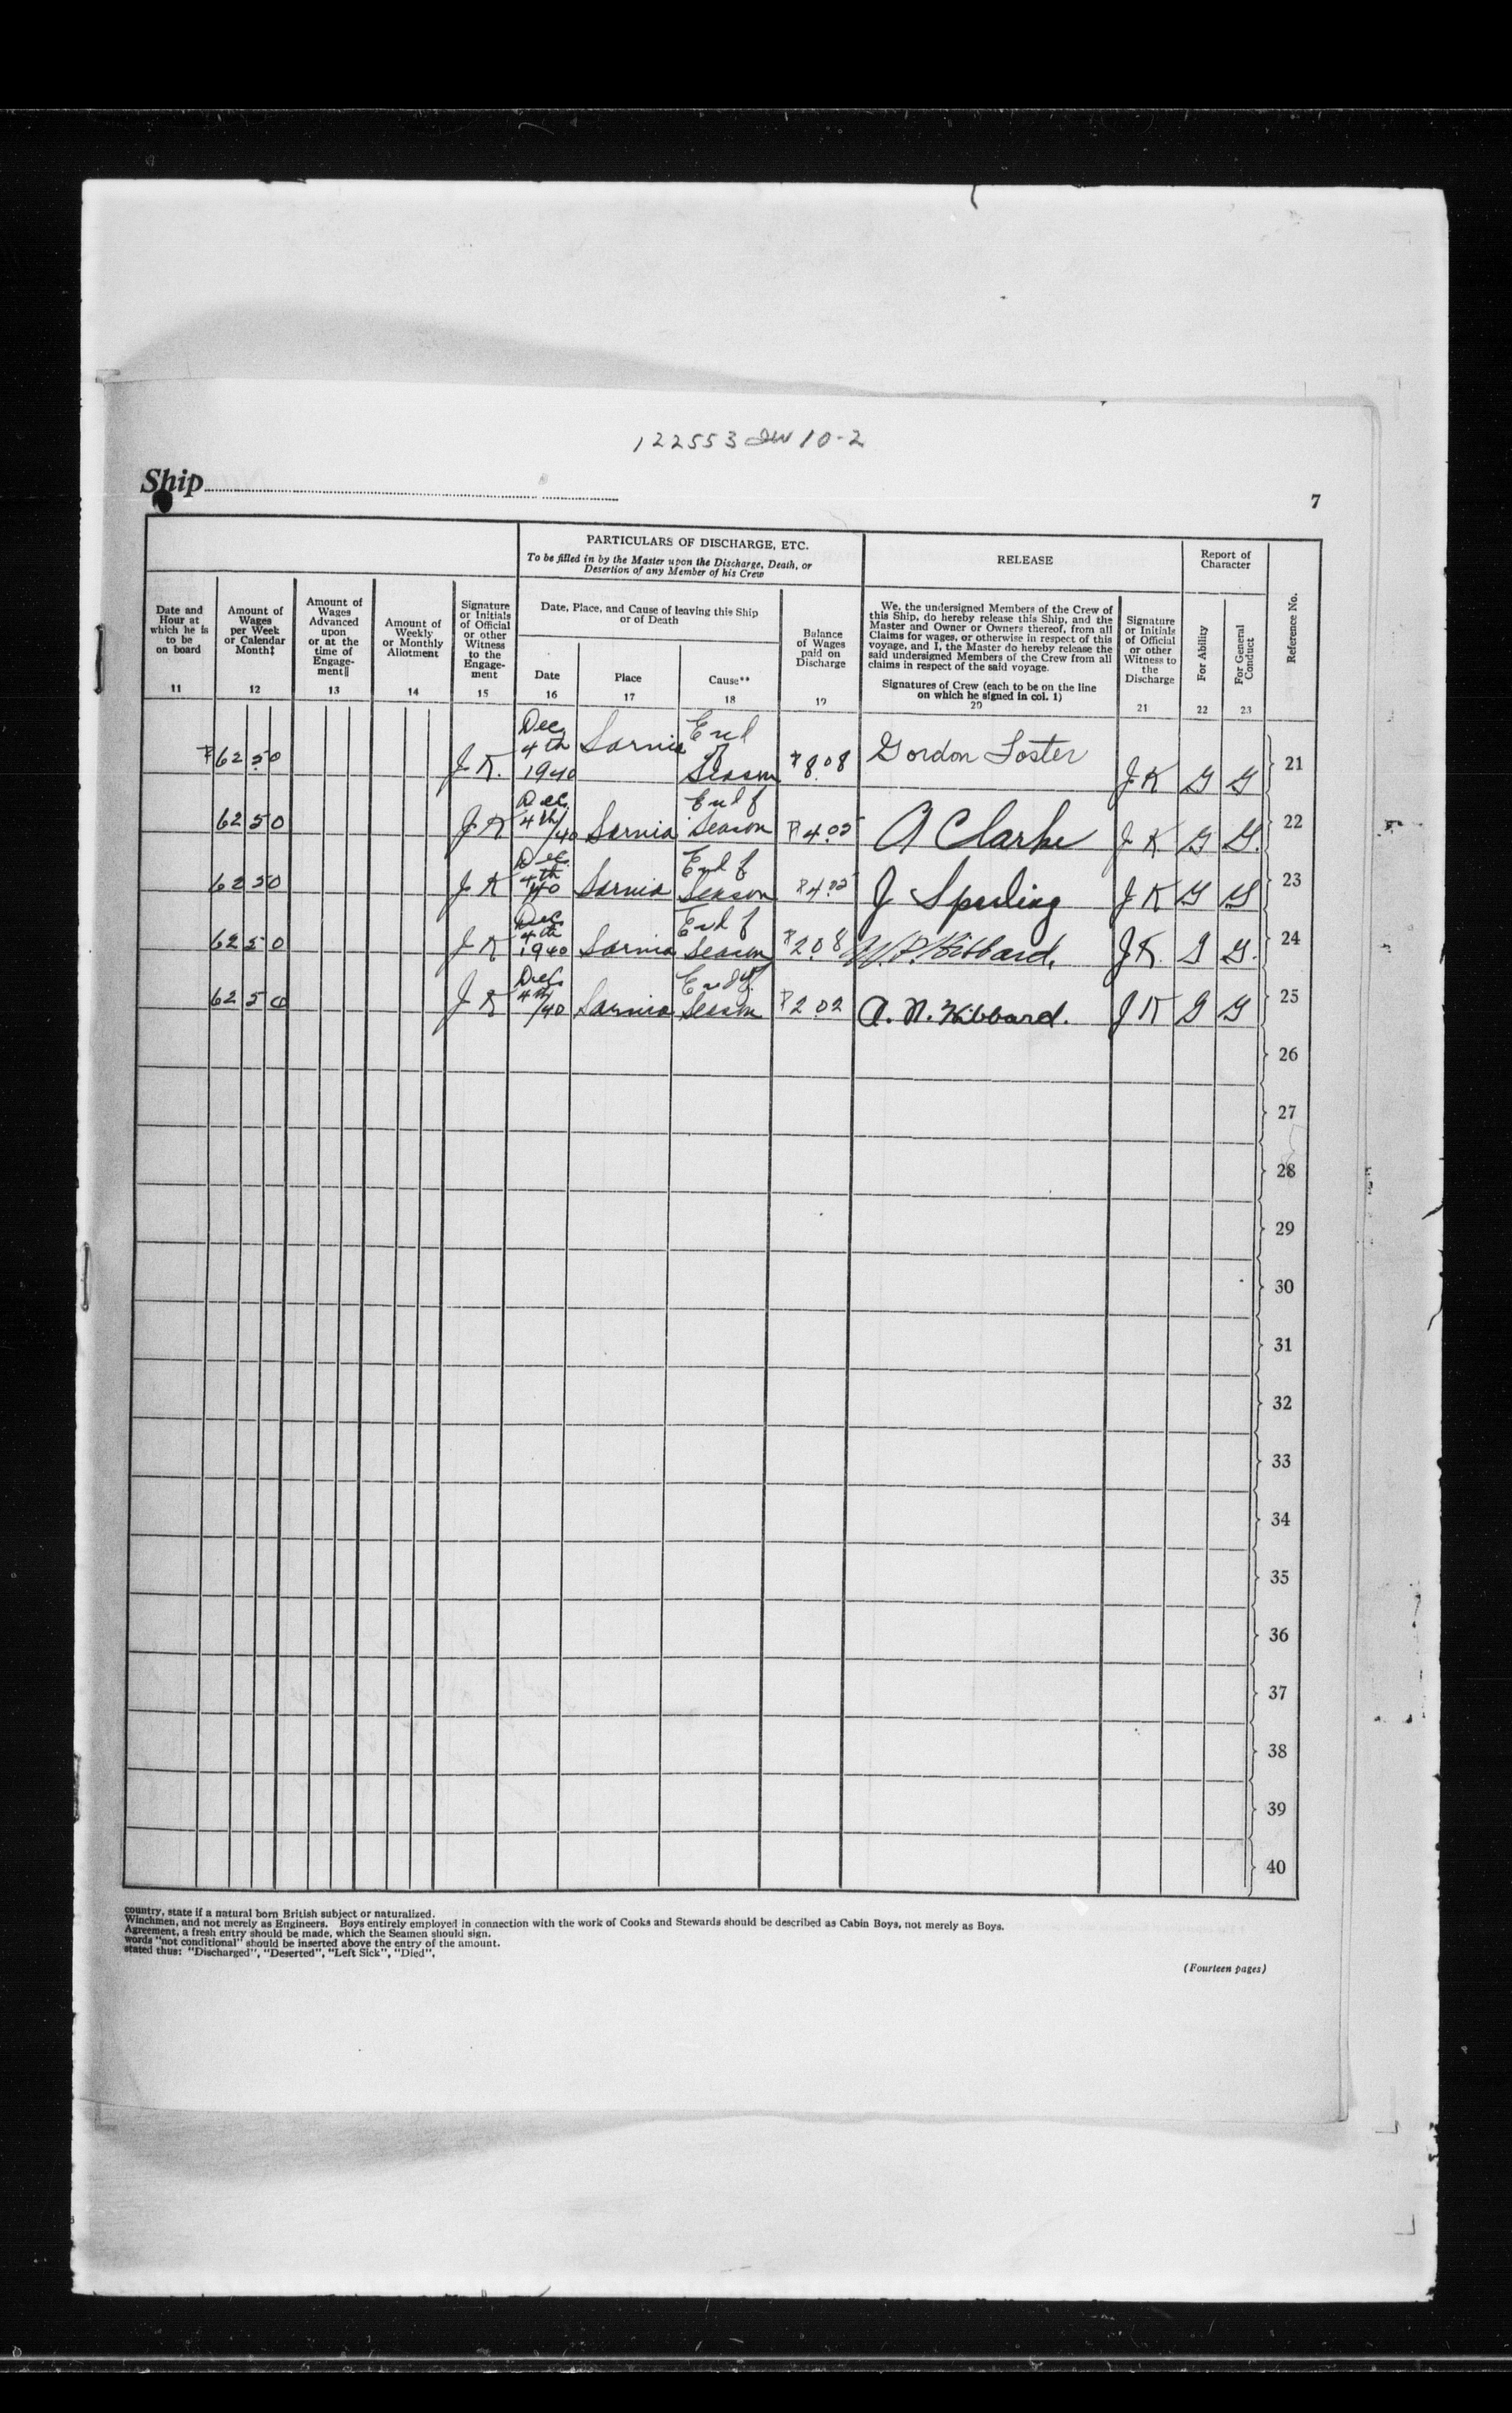 122553 10-2
Ship
7
PARTICULARS OF DISCHARGE, ETC.
To be filled in by the Master upon the Discharge, Death, or
Desertion of any Member of his Crew
RELEASE
Report of
Character
Reference No.
Date and
Hour at
which he is
to be
on board
11
Amount of
Wages
per Week
or Calendar
Month‡
12
Amount of
Wages
Advanced
upon
or at the
time of
Engage-
ment‖
13
Amount of
Weekly
or Monthly
Allotment
14
Signature
or Initials
of Official
or other
Witness
to the
Engage-
ment
15
Date, Place, and Cause of leaving this Ship
or of Death
Date
16
Place
17
Cause**
18
Balance
of Wages
paid on
Discharge
19
We, the undersigned Members of the Crew of
this Ship, do hereby release this Ship, and the
Master and Owner or Owners thereof, from all
Claims for wages, or otherwise in respect of this
voyage, and I, the Master do hereby release the
said undersigned Members of the Crew from all
claims in respect of the said voyage.
Signatures of Crew (each to be on the line
on which he signed in col. 1)
20
Signature
or Initials
of Official
or other
Witness to
the
Discharge
21
For Ability
22
For General
Conduct
23
$62 50 J K. Dec 4th 1940 Sarnia End of Season $8.08 Gordon Foster J K G G 21
62 50 J K Dec. 4th/40 Sarnia End of Season $4.05 A Clarke J K G G. 22
62 50 J K Dec. 4th 40 Sarnia End of Season $4.05 J Sperling J K G G 23
62 50 J K Dec 4th 1940 Sarnia End of Season $2.08 W. P. Hibbard. J K. G G. 24
62 50 J K Dec 4th/40 Sarnia End of Season $2.02 A. N. Hibbard. J K G G 25
26
27
28
29
30
31
32
33
34
35
36
37
38
39
40
country, state if a natural born British subject or naturalized.
Winchmen, and not merely as Engineers. Boys entirely employed in connection with the work of Cooks and Stewards should be described as Cabin Boys, not merely as Boys.
Agreement, a fresh entry should be made, which the Seamen should sign.
words "not conditional" should be inserted above the entry of the amount.
stated thus: "Discharged", "Deserted", "Left Sick", "Died",
(Fourteen pages)